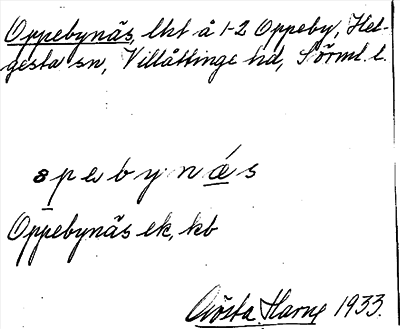 Oppebynäs, lht å 1-2 Oppeby, Hel-
gesta sn, Villåttinge hd, Sörml. l.
spebynás
Oppebynäs ek, kb
Gösta Harne 1933.